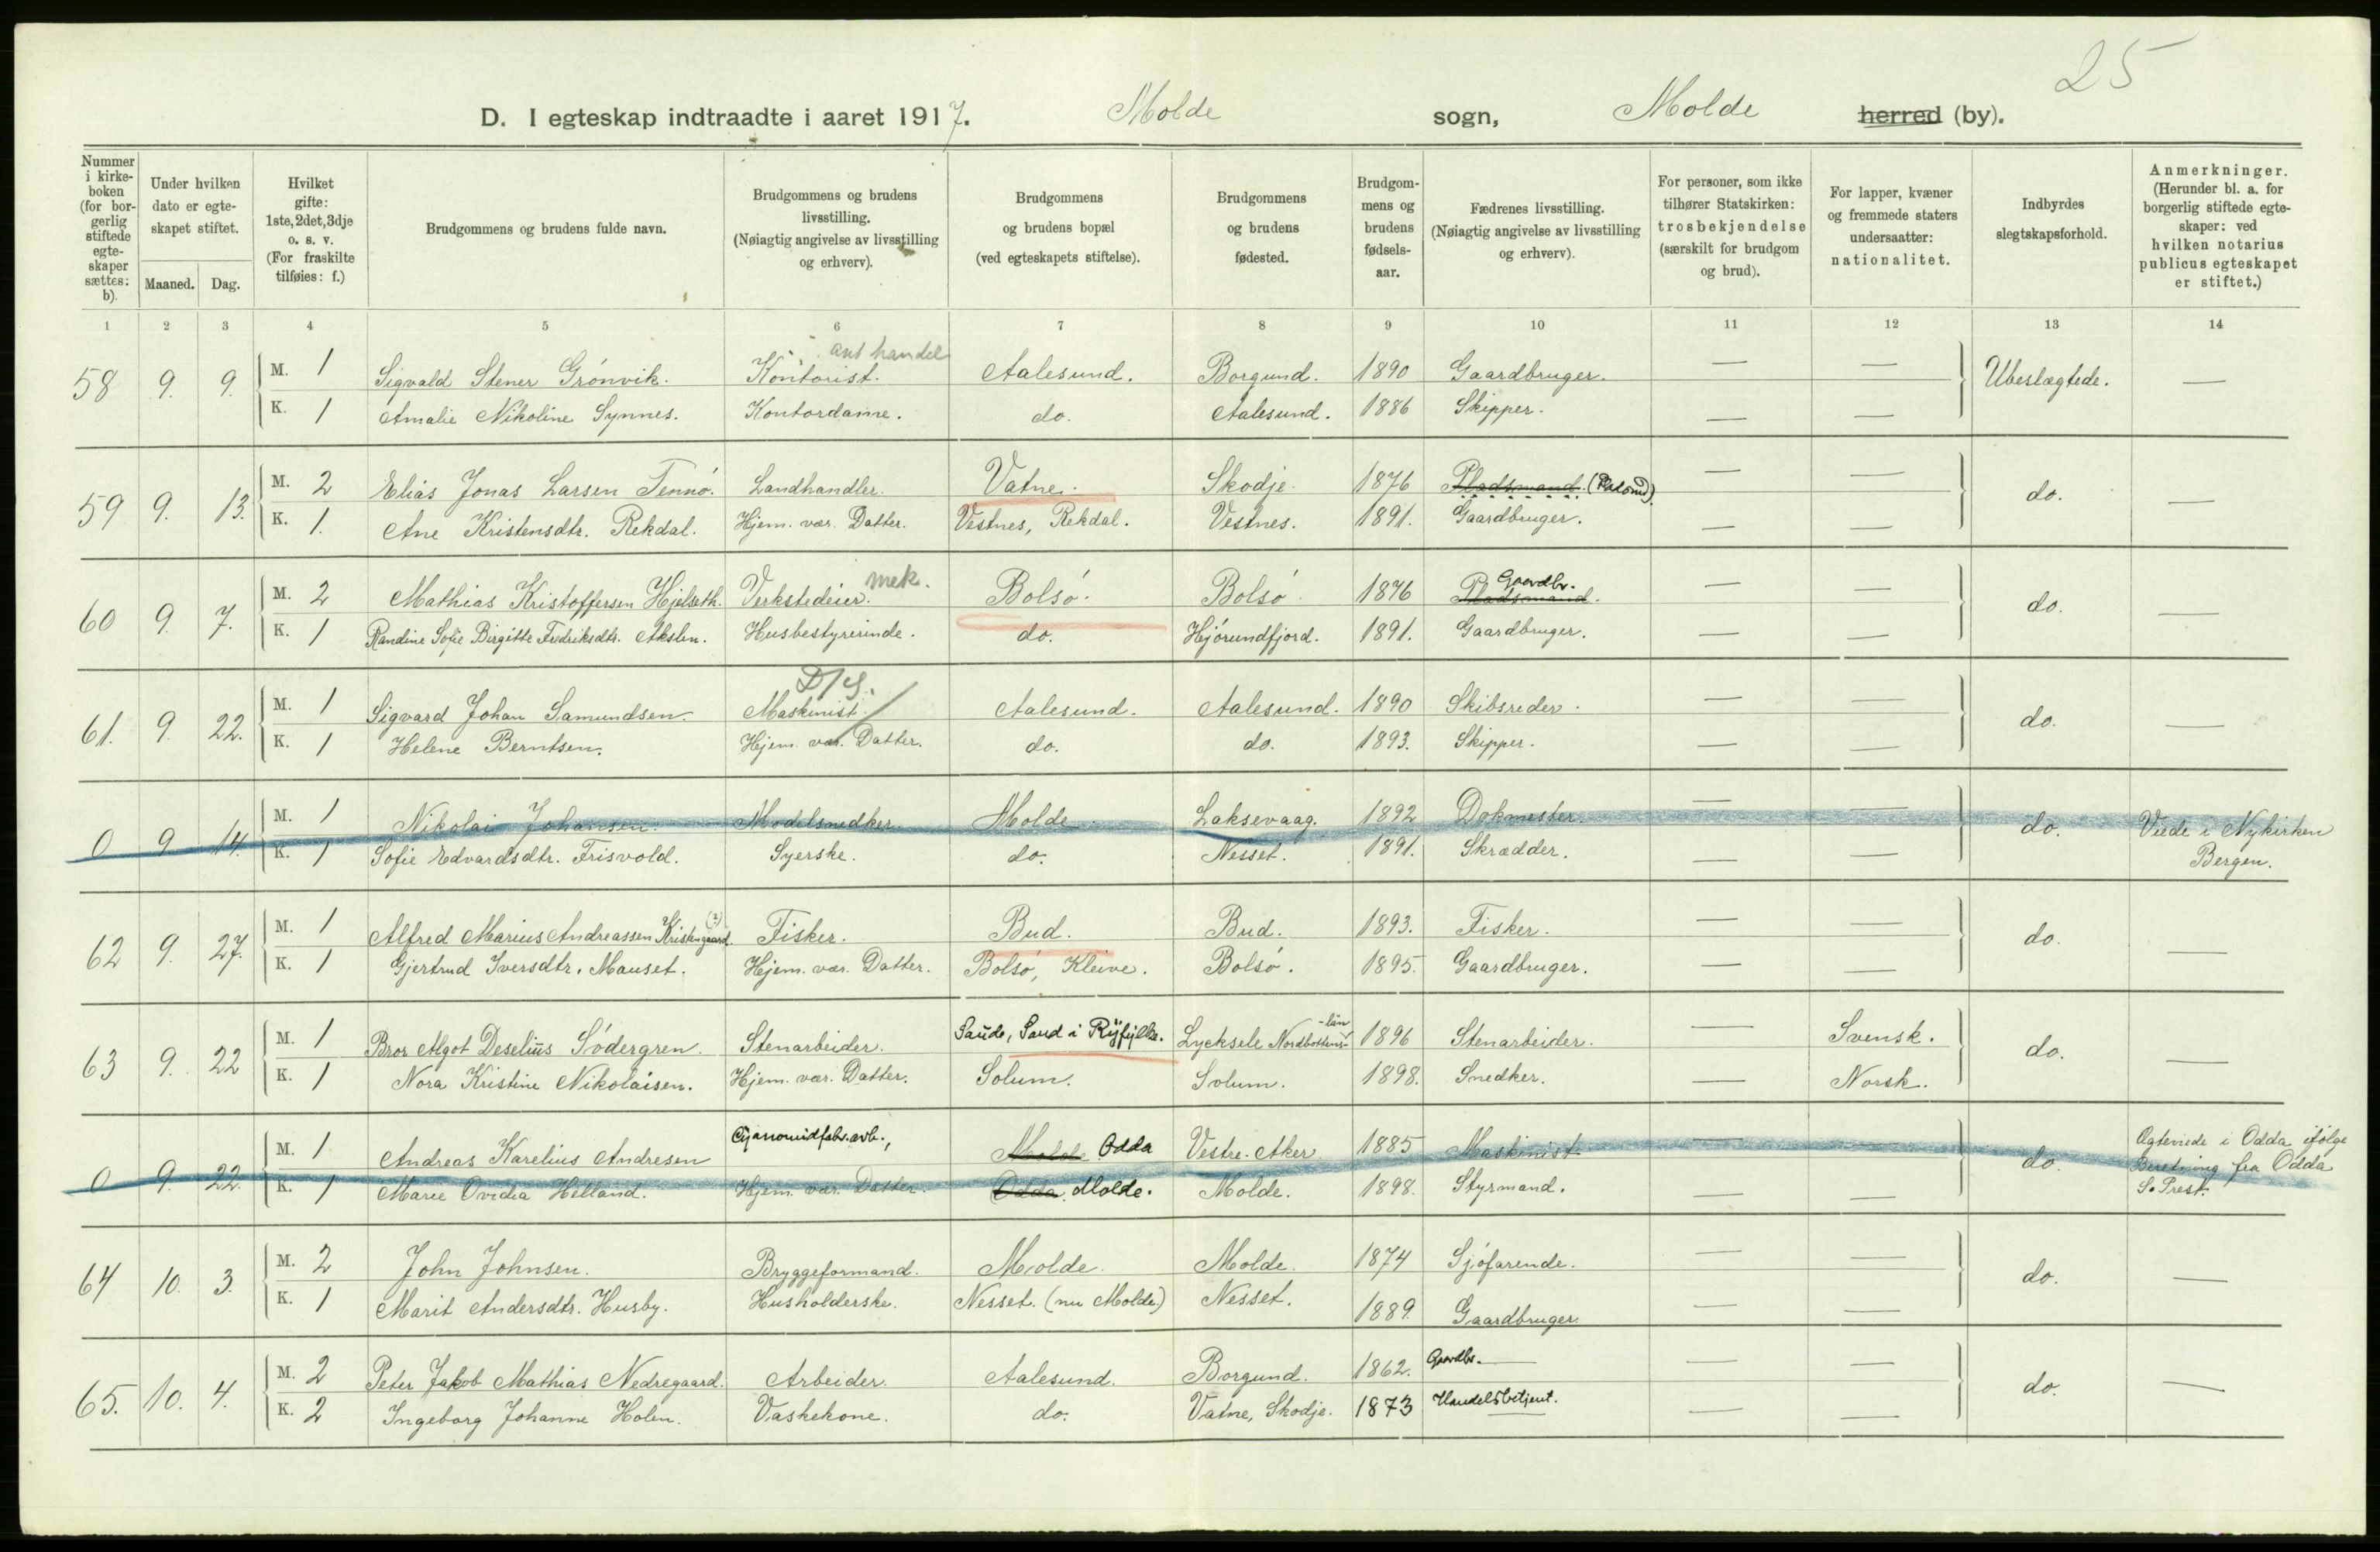 25
D. I egteskap indtraadte i aaret 1917. Molde sogn, Molde herred (by).
Nummer i kirke-boken (for bor-gerlig stiftede egte-skaper sættes: b).
Under hvilken dato er egte-skapet stiftet.
Maaned. Dag.
Hvilket gifte: 1ste, 2det, 3dje o. s. v. (For fraskilte tilføies: f.)
Brudgommens og brudens fulde navn.
Brudgommens og brudens livsstilling. (Nøiagtig angivelse av livsstilling og erhverv).
Brudgommens og brudens bopæl (ved egteskapets stiftelse).
Brudgommens og brudens fødested.
Brudgom-mens og brudens fødsels-aar.
Fædrenes livsstilling. (Nøiagtig angivelse av livsstilling og erhverv).
For personer, som ikke tilhører Statskirken: trosbekjendelse (særskilt for brudgom og brud).
For lapper, kvæner og fremmede staters undersaatter: nationalitet.
Indbyrdes slegtskapsforhold.
Anmerkninger. (Herunder bl. a. for borgerlig stiftede egte-skaper: ved hvilken notarius publicus egteskapet er stiftet.)
1 2 3 4 5 6 7 8 9 10 11 12 13 14
handel
58 9. 9. M. 1 Sigvald Stener Grönvik. Kontorist. Aalesund. Borgund. 1890 Gaardbruger. — — Ubeslægtede. —
K. 1 Amalie Nikoline Synnes. Kontordame. do. Aalesund. 1886 Skipper. — —
59 9. 13. M. 2 Elias Jonas Larsen Tennö. Landhandler. Vatne. Skodje. 1876 Pladsmand. — — do. —
K. 1. Ane Kristensdtr. Rekdal. Hjem. vær. Datter. Vestnes, Rekdal. Vestnes. 1891. Gaardbruger. — —
mek. Gaardbr.
60 9. 7. M. 2 Mathias Kristoffersen Hjelseth. Verkstedeier. Bolsö. Bolsö. 1876 Pladsmand. — — do. —
K. 1 Randine Sofie Birgitte Fredriksdtr. Akslen. Husbestyrerinde. do. Hjörundfjord. 1891. Gaardbruger. — —
D/S.
61. 9. 22. M. 1 Sigvard Johan Samundsen. Maskinist. Aalesund. Aalesund. 1890 Skibsreder. — — do. —
K. 1 Helene Berntsen. Hjem. vær. Datter. do. do. 1893. Skipper. — —
0 9 14. M. 1 Nikolai Johansen. Modelsnedker. Molde. Laksevaag. 1892 Dokmester. — — do. Viede i Nykirken
K. 1 Sofie Edvardsdtr. Frisvold. Syerske. do. Nesset. 1891. Skrædder. — — Bergen.
62 9. 27. M. 1 Alfred Marius Andreassen Kristengaard. (?) Fisker. Bud. Bud. 1893. Fisker. — — do. —
K. 1 Gjertrud Iversdtr. Mauset. Hjem. vær. Datter. Bolsö, Kleive. Bolsö. 1895. Gaardbruger. — —
63 9. 22 M. 1 Bror Algot Deselius Södergren. Stenarbeider. Saude, Sand i Ryfylke. Lycksele Nordbottens-län 1896 Stenarbeider. — Svensk. do. —
K. 1 Nora Kristine Nikolaisen. Hjem. vær. Datter. Solum. Solum. 1898. Snedker. — Norsk.
0 9. 22. M. 1 Andreas Karelius Andresen Cyanomidfabr.arb., Molde Odda Vestre Aker 1885 Maskinist. — — do. Egteviede i Odda ifølge
K. 1 Marie Ovidia Helland. Hjem. vær. Datter. Odda Molde. Molde. 1898. Styrmand. — — Beretning fra Odda
S. Prest.
64 10. 3. M. 2 John Johnsen. Bryggeformand. Molde. Molde. 1874 Sjöfarende. — — do. —
K. 1 Marit Andersdtr. Husby. Husholderske. Nesset. (nu Molde.) Nesset. 1889. Gaardbruger. — —
65. 10. 4. M. 2 Peter Jakob Mathias Nedregaard. Arbeider. Aalesund. Borgund. 1862. Gaardbr. — — — do. —
K. 2 Ingeborg Johanne Holen. Vaskekone. do. Vatne, Skodje. 1873 Handelsbetjent. — —